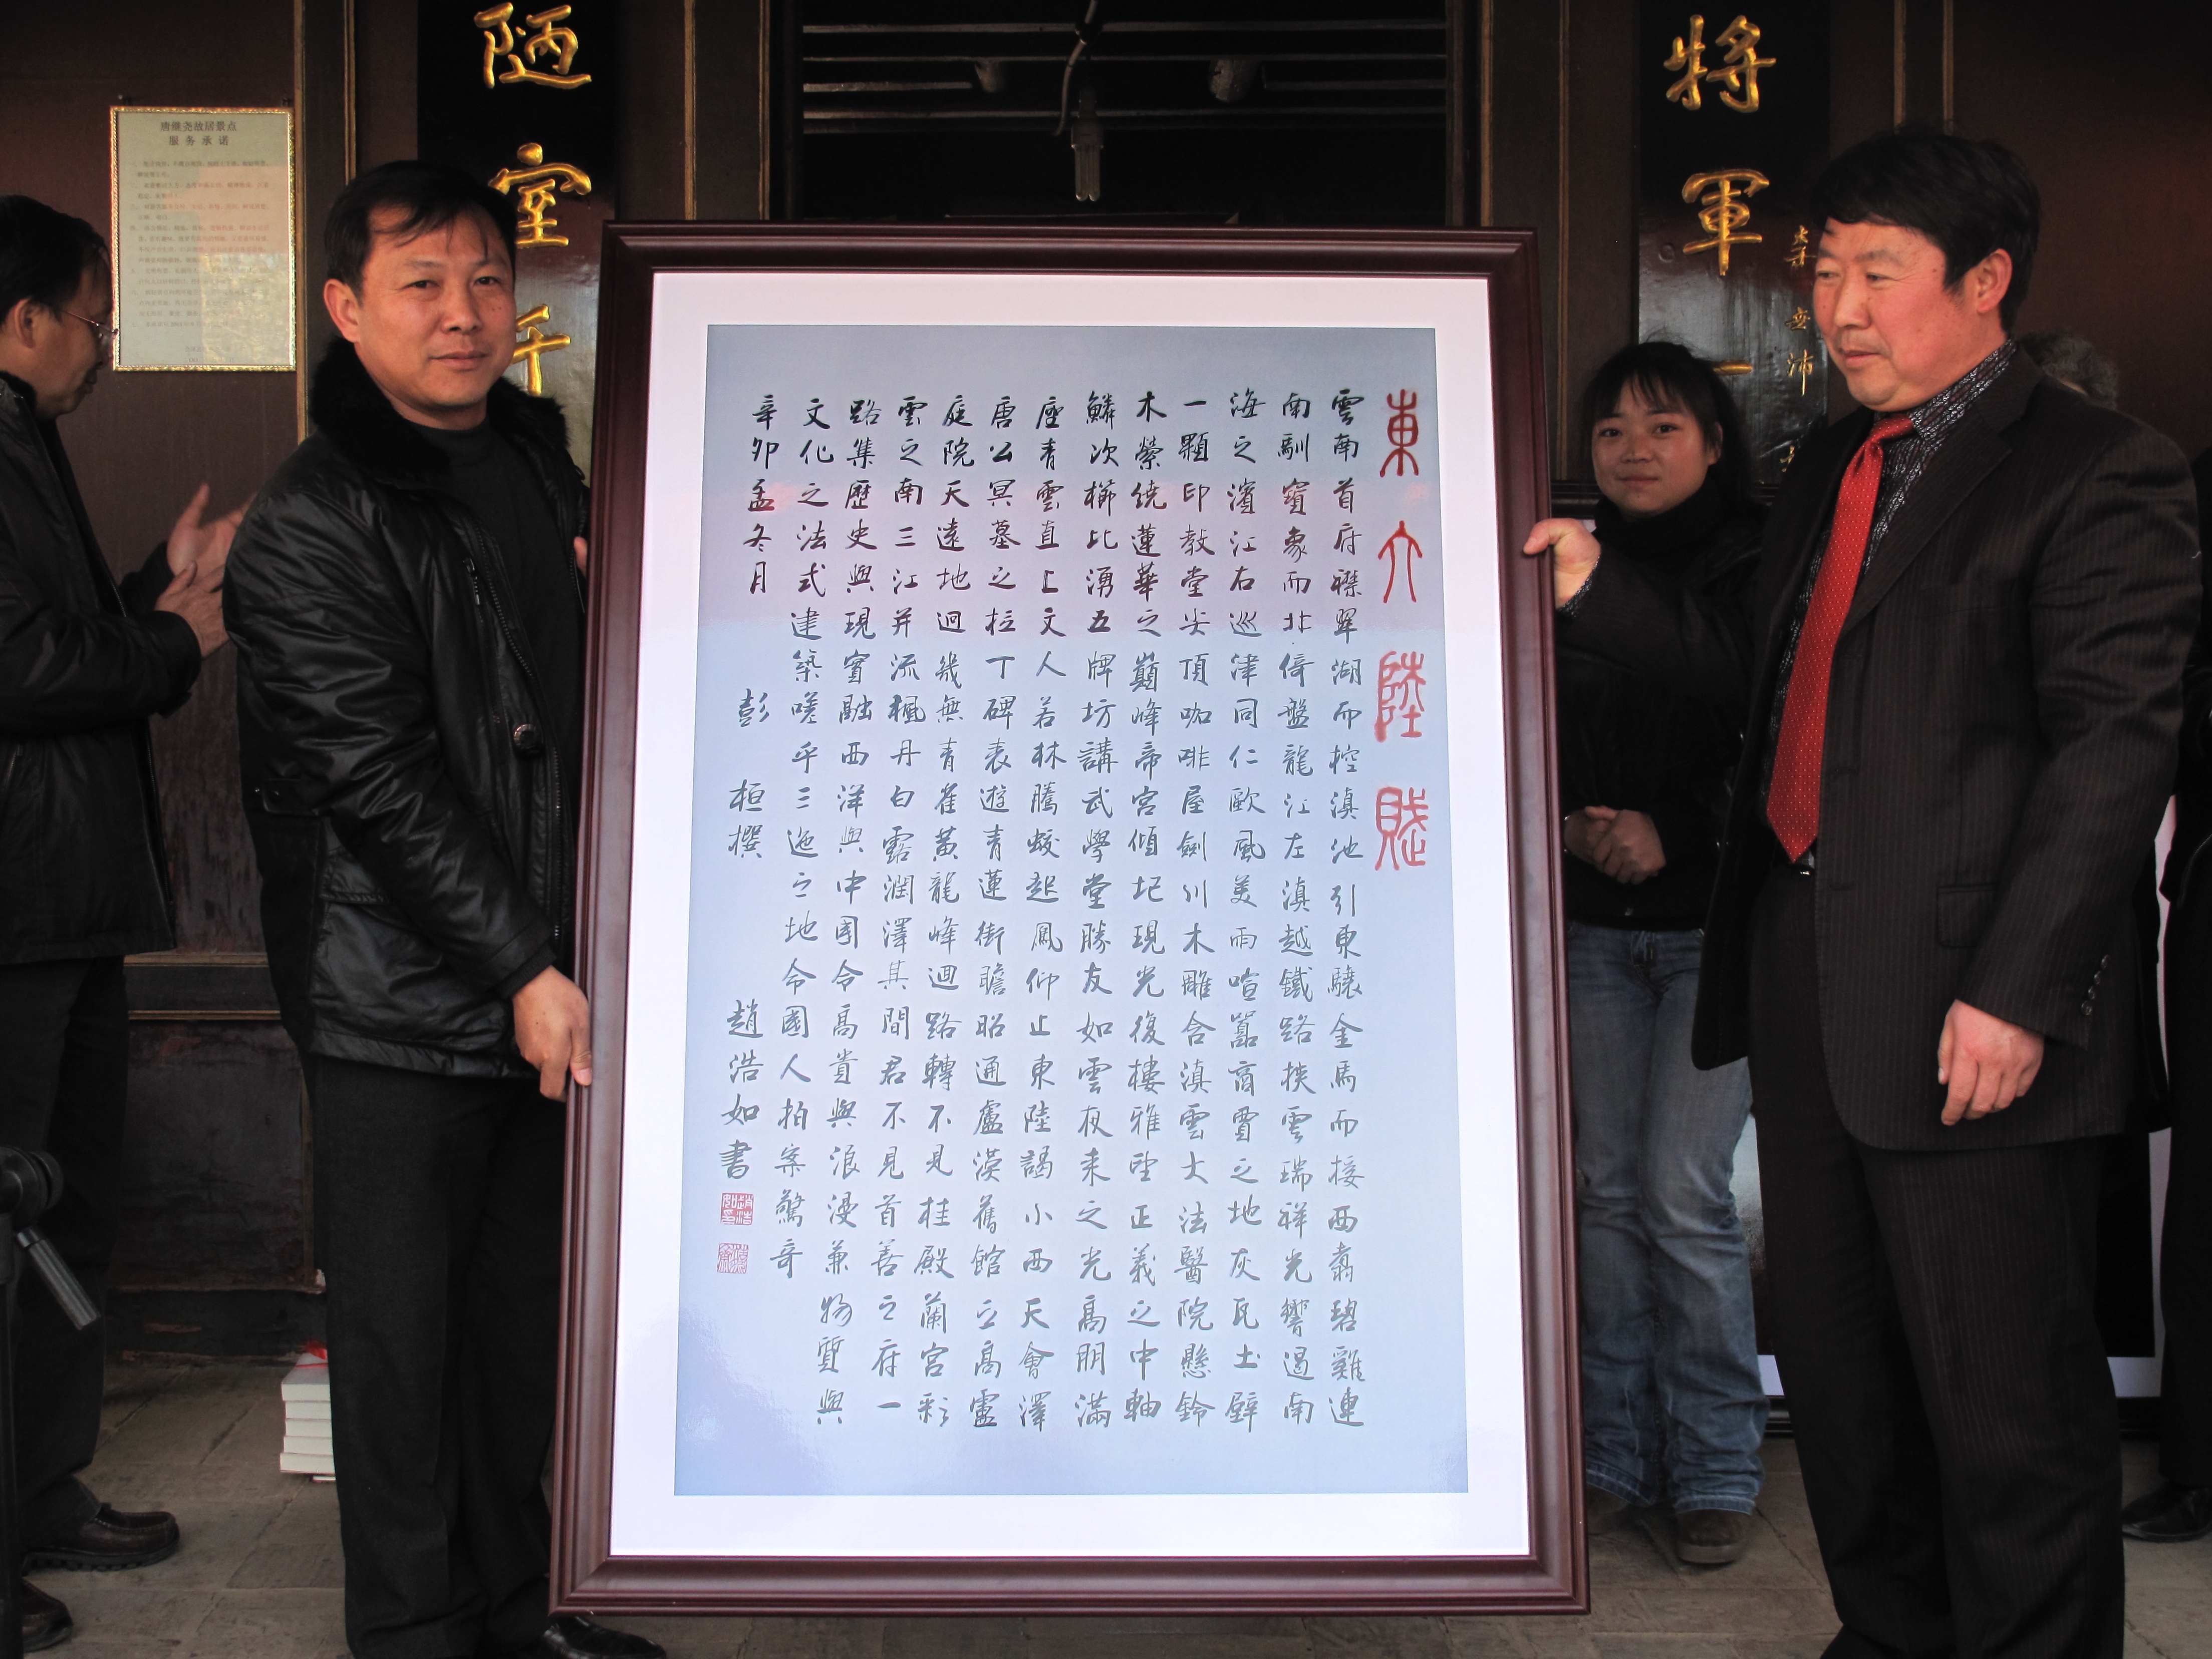 唐继尧故居景点
服务承诺
陋室千
將軍一
東大陸賦
雲南首府襟翠湖而控滇池引東驤金馬而接西翥碧雞連
南馴寶象而北倚盤龍江左滇越鐵路挾雲瑞祥光響遏南
海之濱江右巡津同仁歐風美雨喧囂商賈之地灰瓦土壁
一顆印教堂尖頂咖啡屋劍川木雕含滇雲大法醫院懸鈴
木縈繞蓮華之巔峰帝宮傾圮現光復樓雅望正義之中軸
鱗次櫛比湧五牌坊講武學堂勝友如雲夜來之光高朋滿
座青雲直上文人若林騰蛟起鳳仰止東陸謁小西天會澤
唐公冥墓之拉丁碑表遊青蓮街瞻昭通盧漢舊館立高盧
庭院天遠地迥幾無青雀黃龍峰迴路轉不見桂殿蘭宮彩
雲之南三江并流楓丹白露潤澤其間君不見首善之府一
路集歷史與現實融西洋與中國令高貴與浪漫兼物質與
文化之法式建築嗟乎三迤之地令國人拍案驚奇
辛卯孟冬月 彭桓撰 趙浩如書